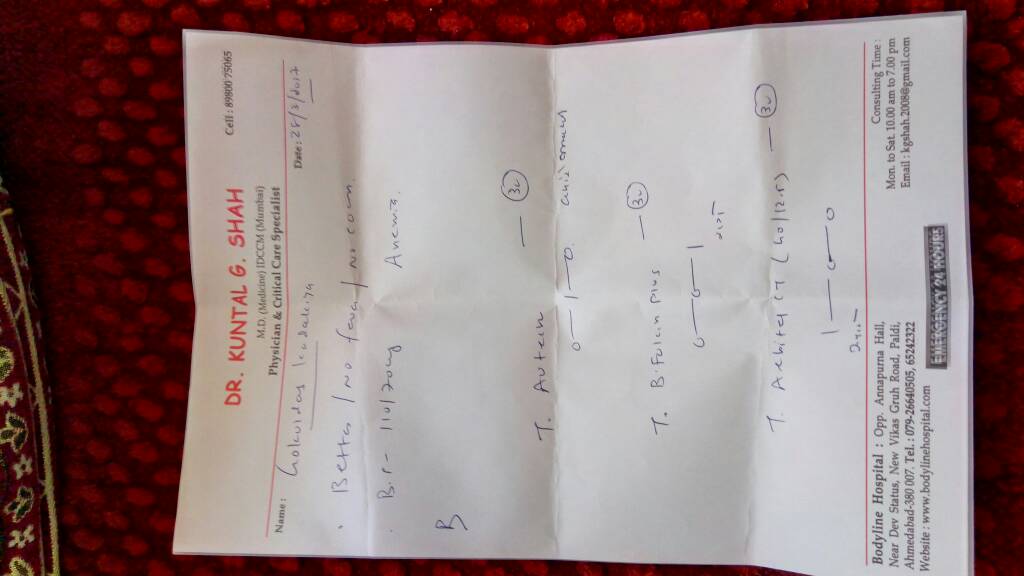 DR. KUNTAL G. SHAH
M.D. (Medicine) IDCCM (Mumbai)
Physician & Critical Care Specialist
Cell : 89800 75065
Name :
Date :
Better / no fever / no com.
B.P - 110/70 Anemia.
T. - 30
0—1—0
T. B. Folcin Plus - 30
0—0—1
T. Arbitel CT (40/12.5) - 30
1—0—0
Bodyline Hospital : Opp. Annapurna Hall,
Near Dev Status, New Vikas Gruh Road, Paldi,
Ahmedabad-380 007. Tel. : 079-26640505, 65242322
Website : www.bodylinehospital.com
EMERGENCY 24 HOURS
Consulting Time :
Mon. to Sat. 10.00 am to 7.00 pm
Email : kgshah.2008@gmail.com